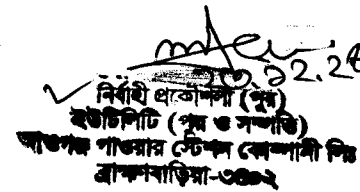 ২৩.১২.২৪
নির্বাহী প্রকৌশলী (পুর)
ইউটিলিটি (পুর ও সম্পত্তি)
আশুগঞ্জ পাওয়ার স্টেশন কোম্পানী লিঃ
ব্রাহ্মণবাড়িয়া-৩৪০২